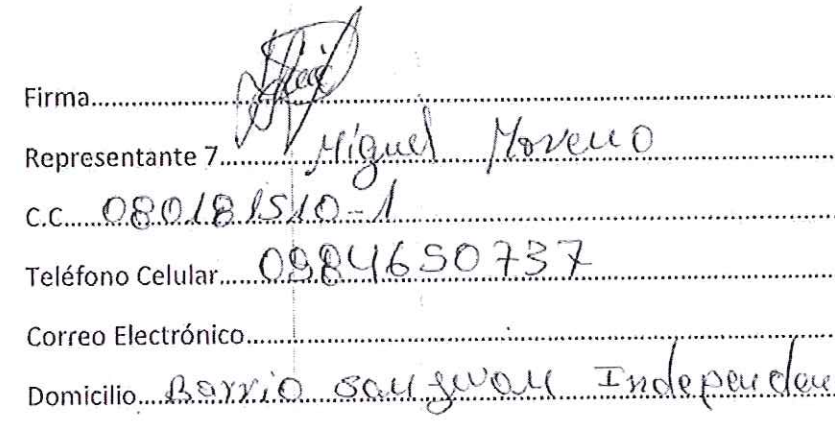 Firma
Representante 7 Miguel Moreno
C.C. 080181510-1
Teléfono Celular 0984650737
Correo Electrónico
Domicilio Barrio San Juan Independen